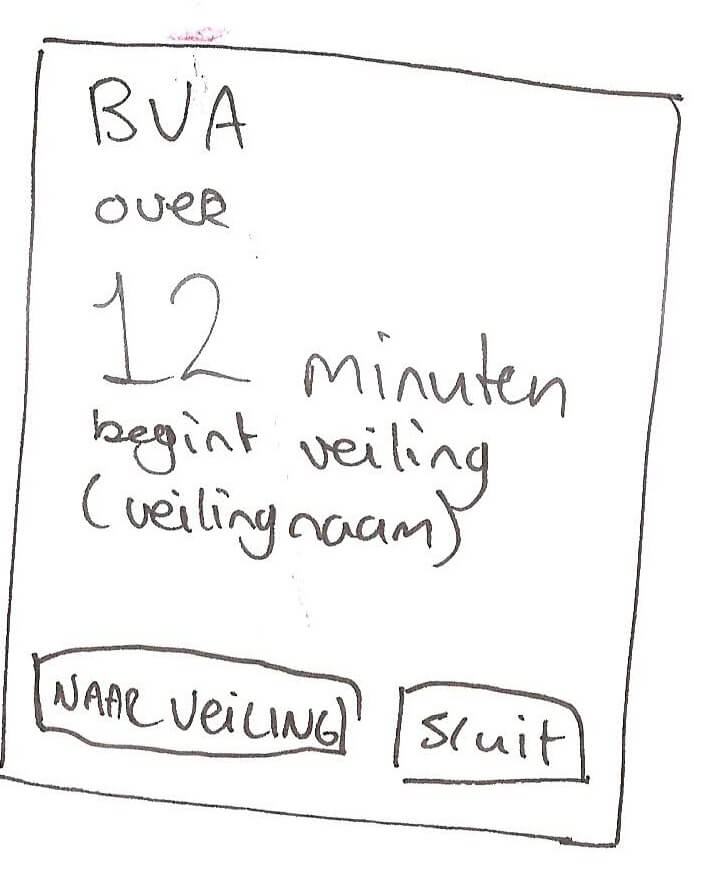 BVA
over
12 minuten
begint veiling
(veilingnaam)
NAAR VEILING
Sluit